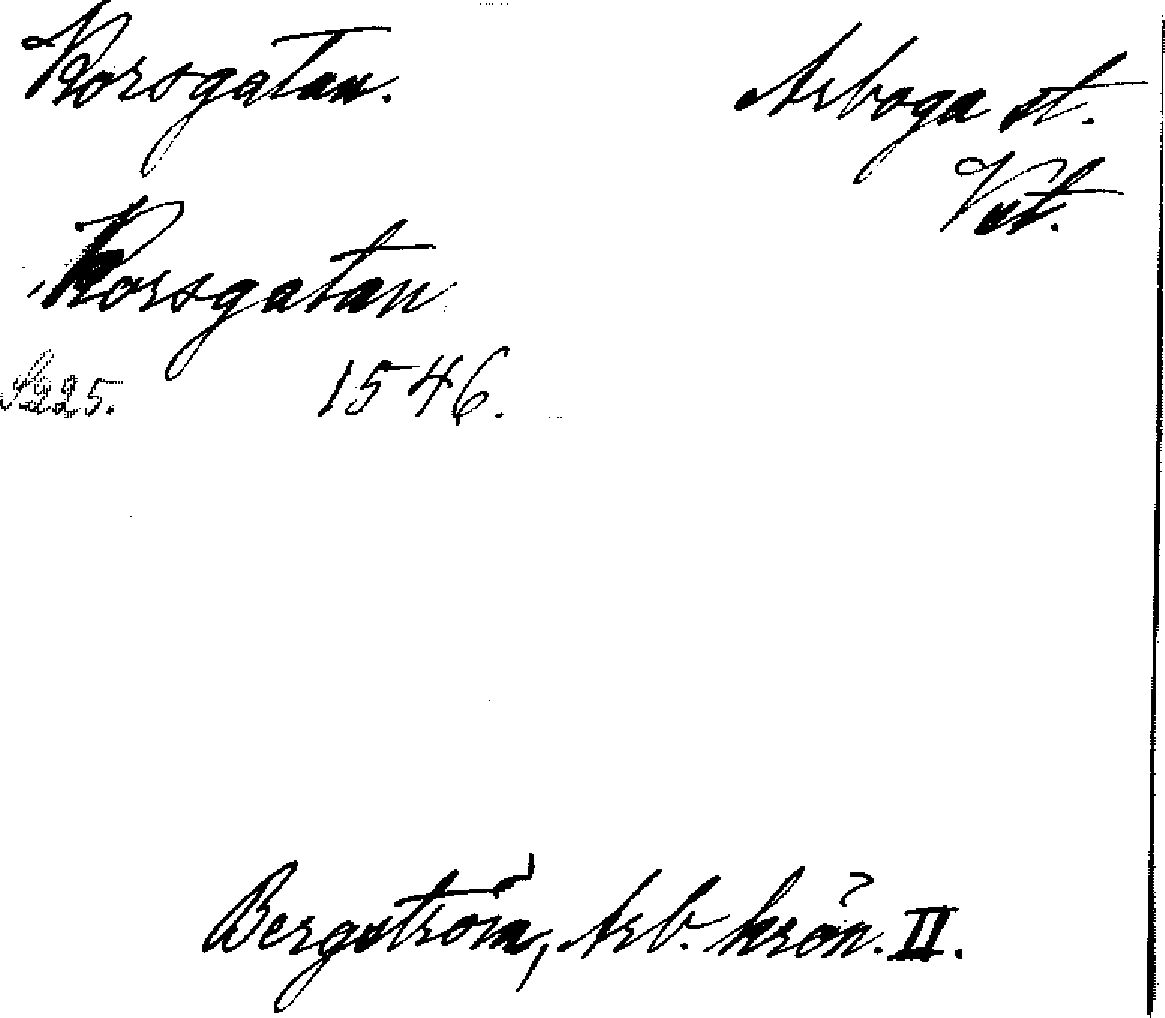 Korsgatan.
Arboga st.
Vst.
Korsgatan
S. 225. 1546.
Bergström, Arb. krön. II.